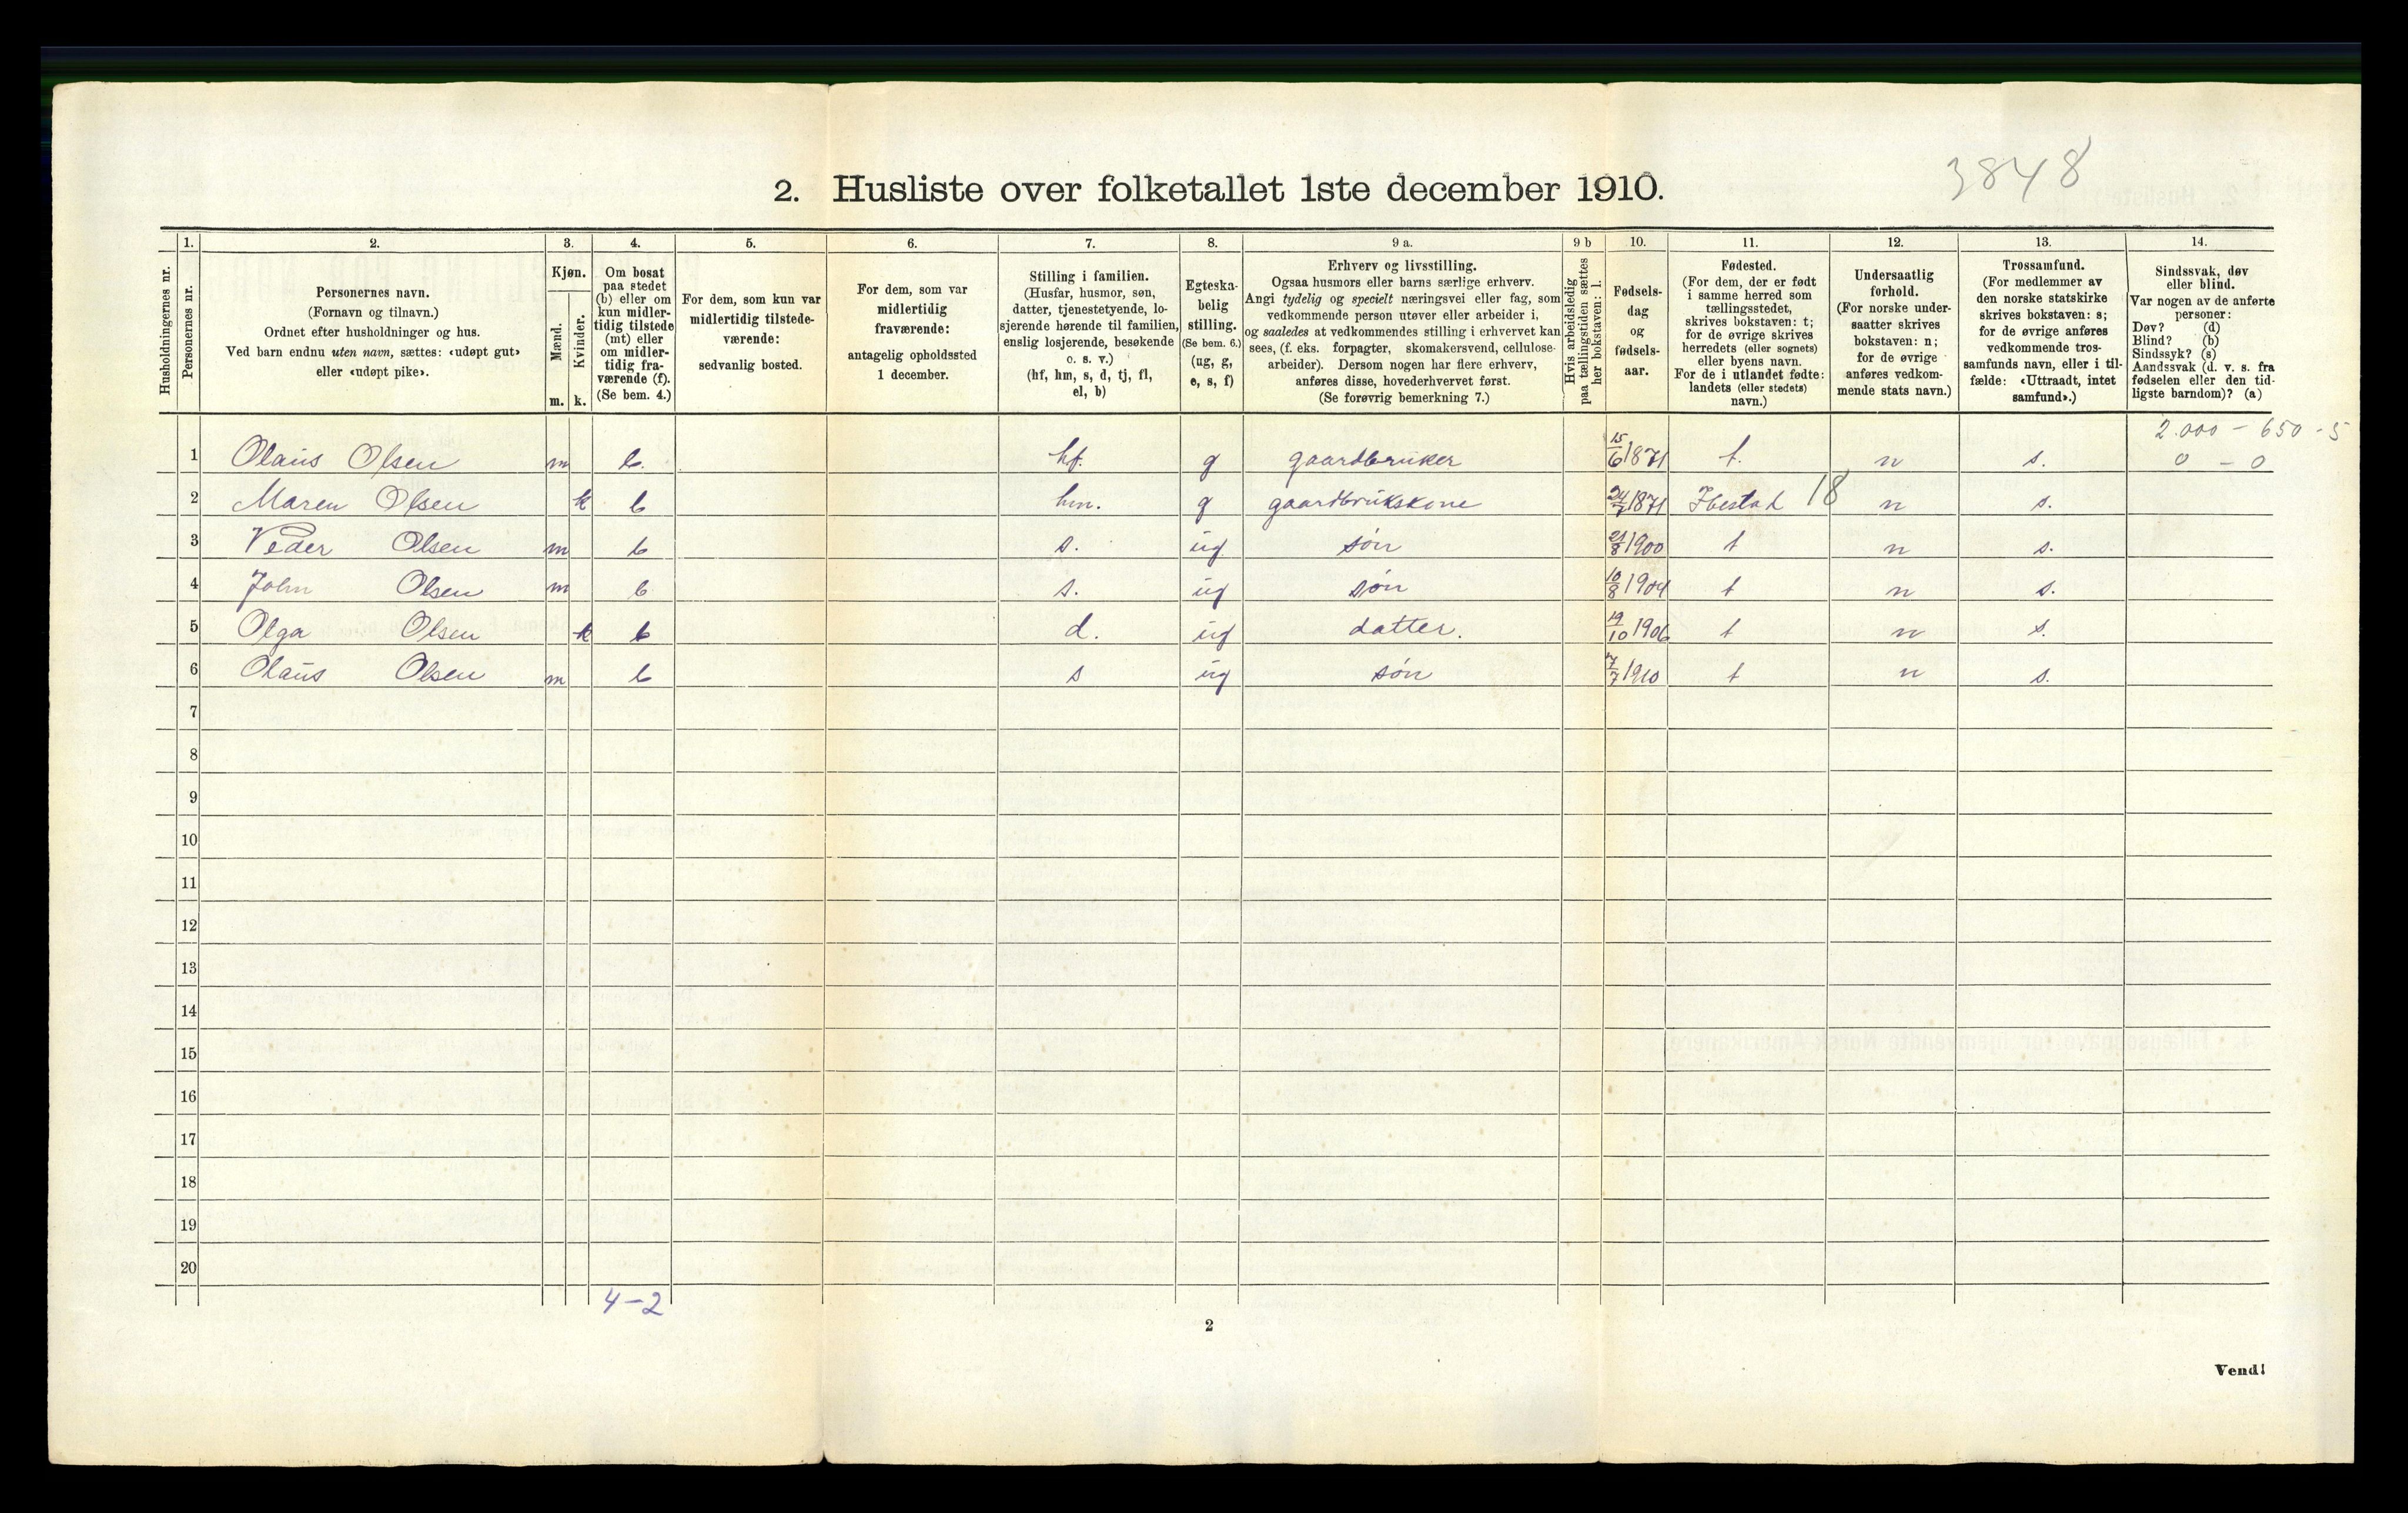 3848
2. Husliste over folketallet 1ste december 1910.
Husholdningernes nr.
1.
Personernes nr.
2.
Personernes navn.
(Fornavn og tilnavn.)
Ordnet efter husholdninger og hus.
Ved barn endnu uten navn, sættes: «udøpt gut»
eller «udøpt pike».
3.
Kjøn.
Mænd.
Kvinder.
m. k.
4.
Om bosat
paa stedet
(b) eller om
kun midler-
tidig tilstede
(mt) eller
om midler-
tidig fra-
værende (f).
(Se bem. 4.)
5.
For dem, som kun var
midlertidig tilstede-
værende:
sedvanlig bosted.
6.
For dem, som var
midlertidig
fraværende:
antagelig opholdssted
1 december.
7.
Stilling i familien.
(Husfar, husmor, søn,
datter, tjenestetyende, lo-
sjerende hørende til familien,
enslig losjerende, besøkende
o. s. v.)
(hf, hm, s, d, tj, fl,
el, b)
8.
Egteska-
belig
stilling.
(Se bem. 6.)
(ug, g,
e, s, f)
9 a.
Erhverv og livsstilling.
Ogsaa husmors eller barns særlige erhverv.
Angi tydelig og specielt næringsvei eller fag, som
vedkommende person utøver eller arbeider i,
og saaledes at vedkommendes stilling i erhvervet kan
sees, (f. eks. forpagter, skomakersvend, cellulose-
arbeider). Dersom nogen har flere erhverv,
anføres disse, hovederhvervet først.
(Se forøvrig bemerkning 7.)
9 b
Hvis arbeidsledig
paa tællingstiden sættes
her bokstaven: l.
10.
Fødsels-
dag
og
fødsels-
aar.
11.
Fødested.
(For dem, der er født
i samme herred som
tællingsstedet,
skrives bokstaven: t;
for de øvrige skrives
herredets (eller sognets)
eller byens navn.
For de i utlandet fødte:
landets (eller stedets)
navn.)
12.
Undersaatlig
forhold.
(For norske under-
saatter skrives
bokstaven: n;
for de øvrige
anføres vedkom-
mende stats navn.)
13.
Trossamfund.
(For medlemmer av
den norske statskirke
skrives bokstaven: s;
for de øvrige anføres
vedkommende tros-
samfunds navn, eller i til-
fælde: «Uttraadt, intet
samfund».)
14.
Sindssvak, døv
eller blind.
Var nogen av de anførte
personer:
Døv? (d)
Blind? (b)
Sindssyk? (s)
Aandssvak (d. v. s. fra
fødselen eller den tid-
ligste barndom)? (a)
2.000 - 650 - 5
1 Olaus Olsen m b. hf. g gaardbruker 15/6 1871 t. n s. 0 - 0
2 Maren Olsen k b hm. g gaardbrukskone 1871 Ibestad 18 n s.
3 Peder Olsen m b s. ug søn 21/8 1900 t n s.
4 John Olsen m b s. ug søn 10/8 1904 t n s.
5 Olga Olsen k b d. ug datter. 19/10 1906 t n s.
6 Olaus Olsen m b s ug søn 7/7 1910 t n s.
7
8
9
10
11
12
13
14
15
16
17
18
19
20
4-2
2
Vend!